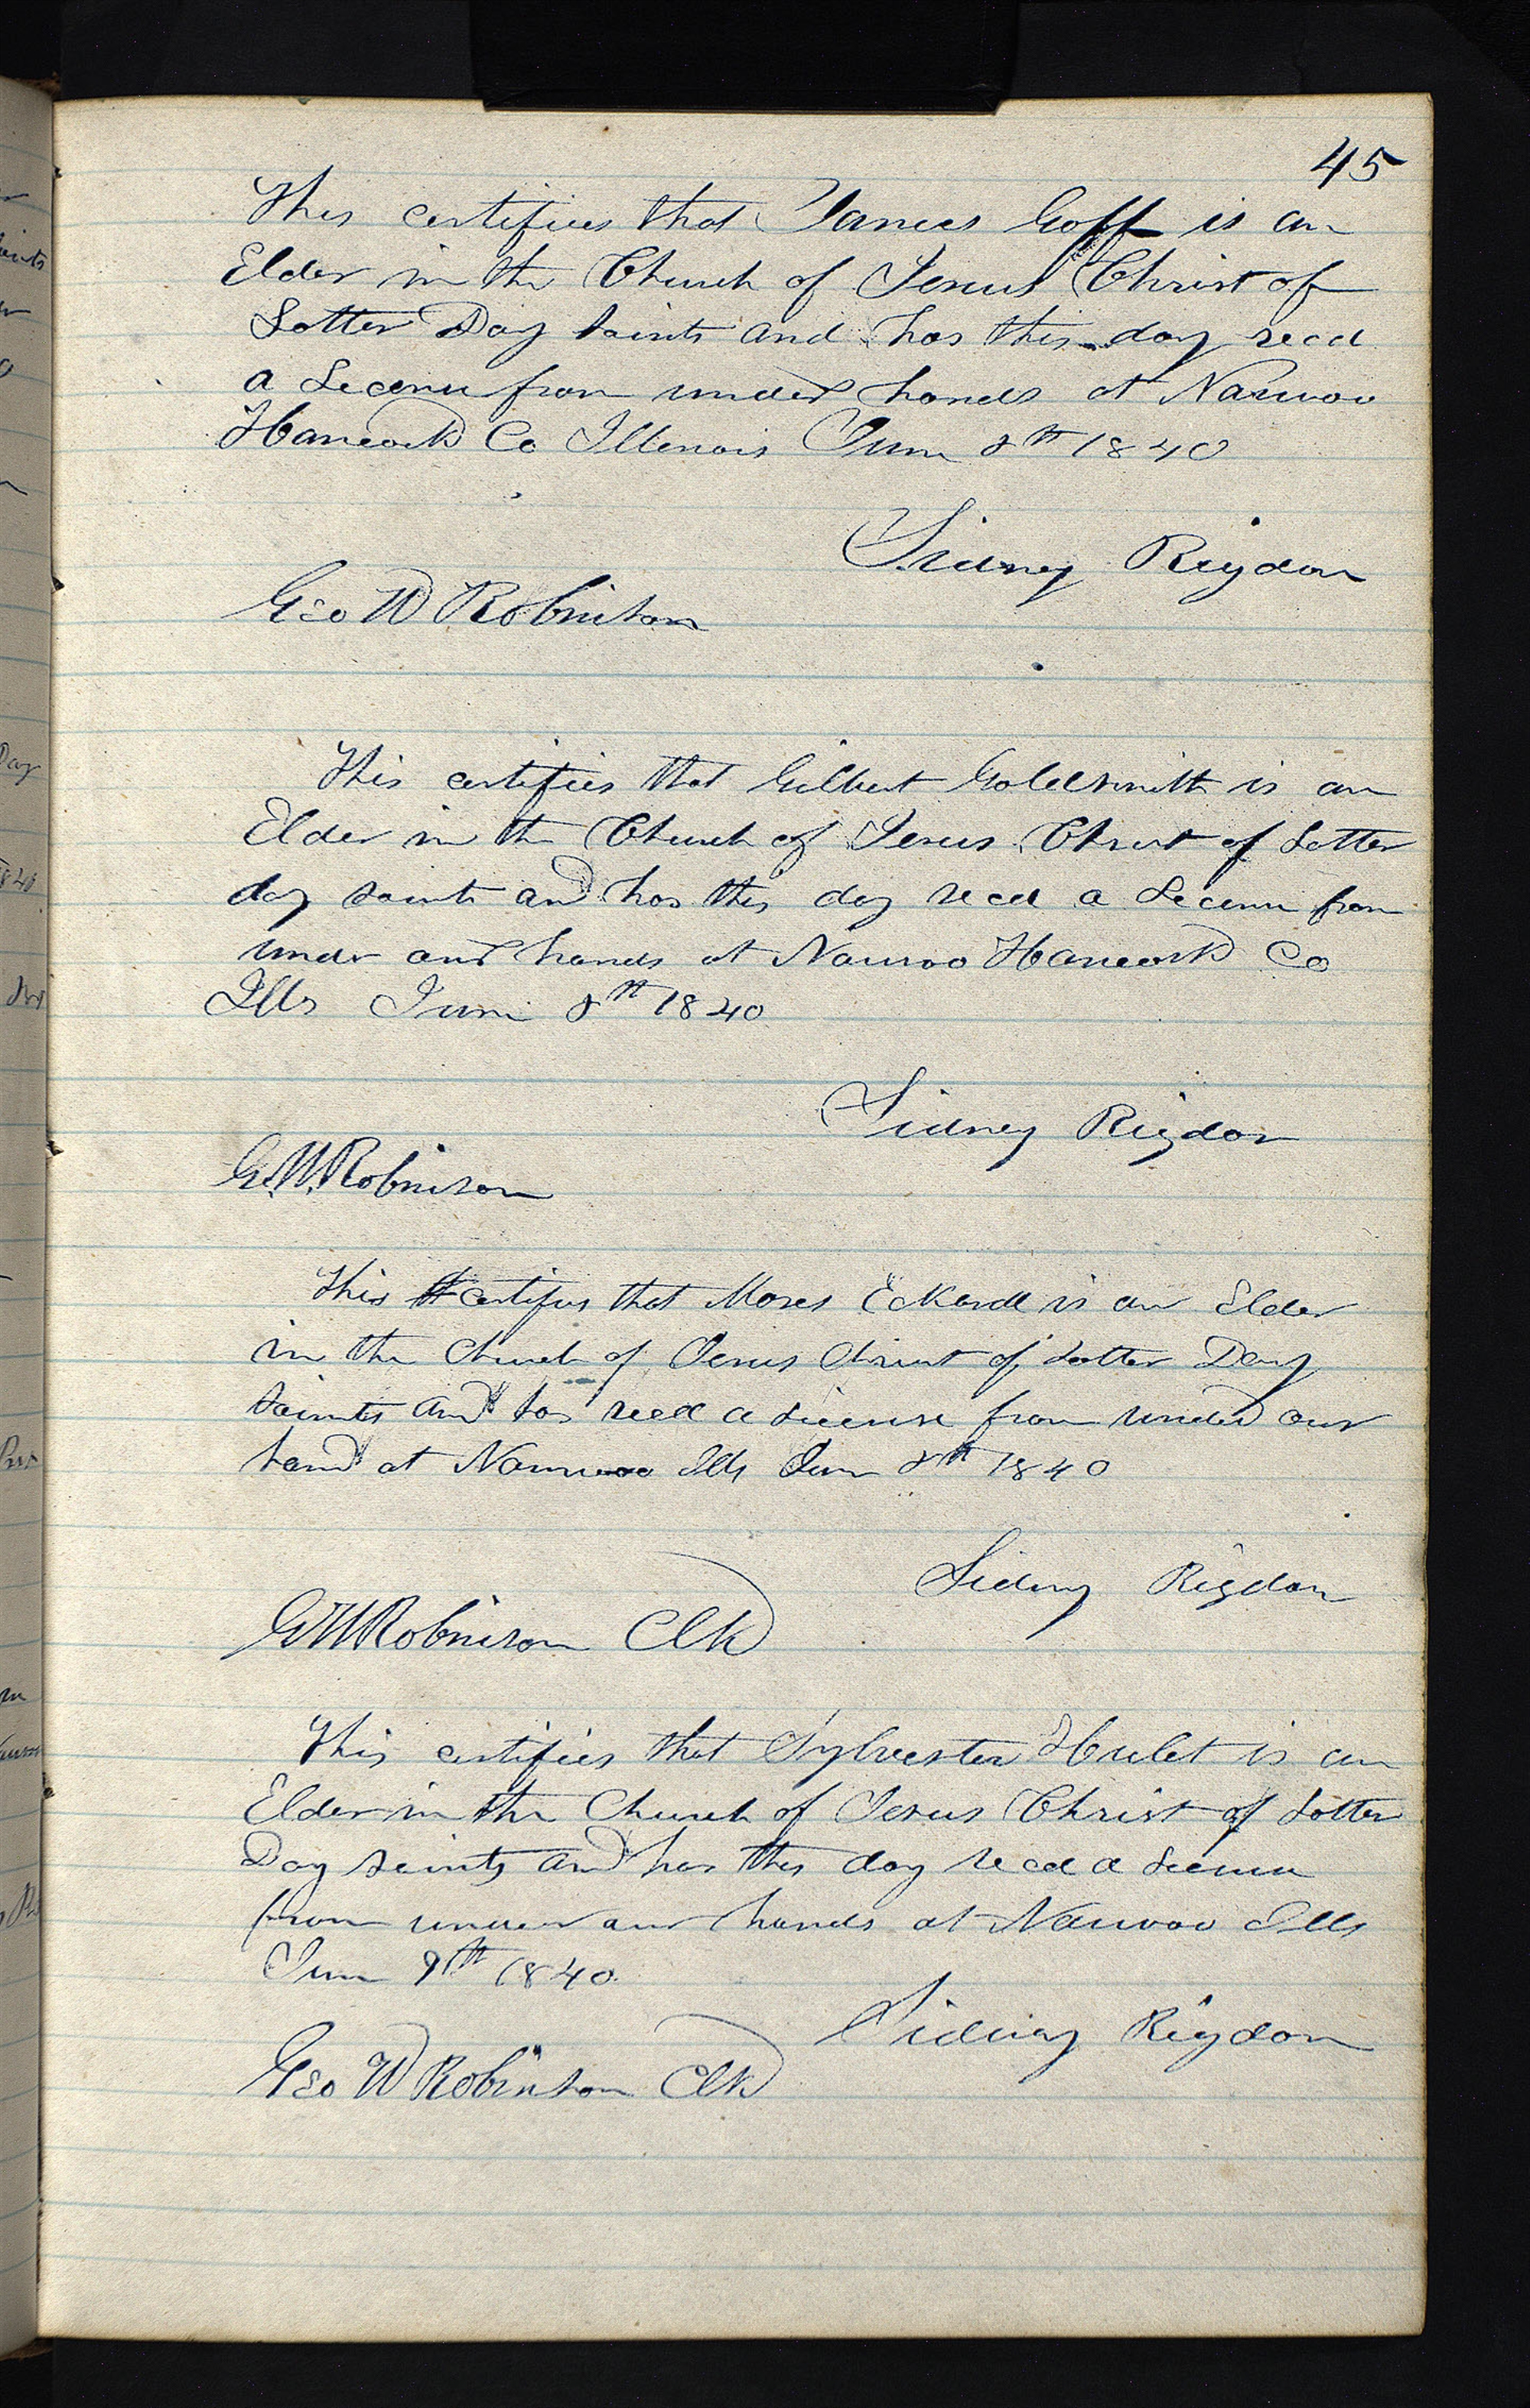 45
This certifies that James Goff is an
Elder in the Church of Jesus Christ of
Latter Day Saints and has this day recd
a Licenu from under hands at Nauvoo
Hancock Co Illinois June 8th 1840
Sidney Rigdon
Geo W Robinson
This certifies that Gilbert Goldsmith is an
Elder in the Church of Jesus Christ of Latter
day saints and has this day recd a Licenu from
under our hands at Nauvoo Hancock Co
Ills June 8th 1840
Sidney Rigdon
G. W. Robinson
This certifies that Moses Eckardt is an Elder
in the Church of Jesus Christ of Latter Day
Saints and has recd a License from under our
hand at Nauvoo Ills June 8th 1840
Sidney Rigdon
G W Robinson Clk
This certifies that Sylvester Hulet is an
Elder in the Church of Jesus Christ of Latter
Day Saints and has this day recd a License
from under our hands at Nauvoo Ills
June 9th 1840.
Sidney Rigdon
Geo W Robinson Clk